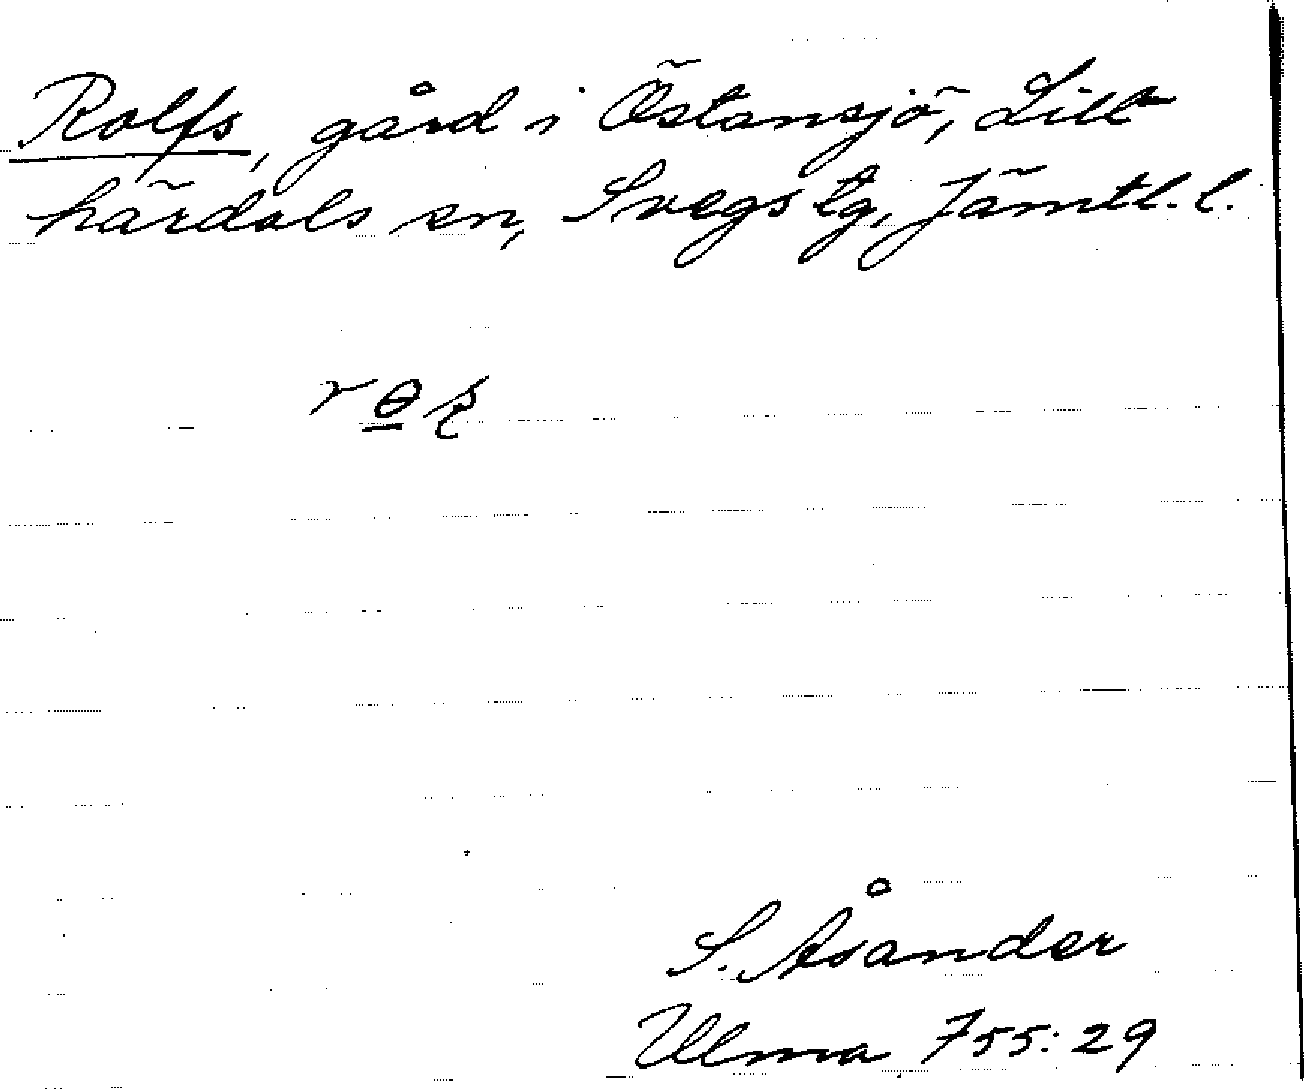 Rolfs, gård i Östansjö, Lill-
härdals sn, Svegs tg, Jämtl. l.
S. Åsander
Ulma 755:29